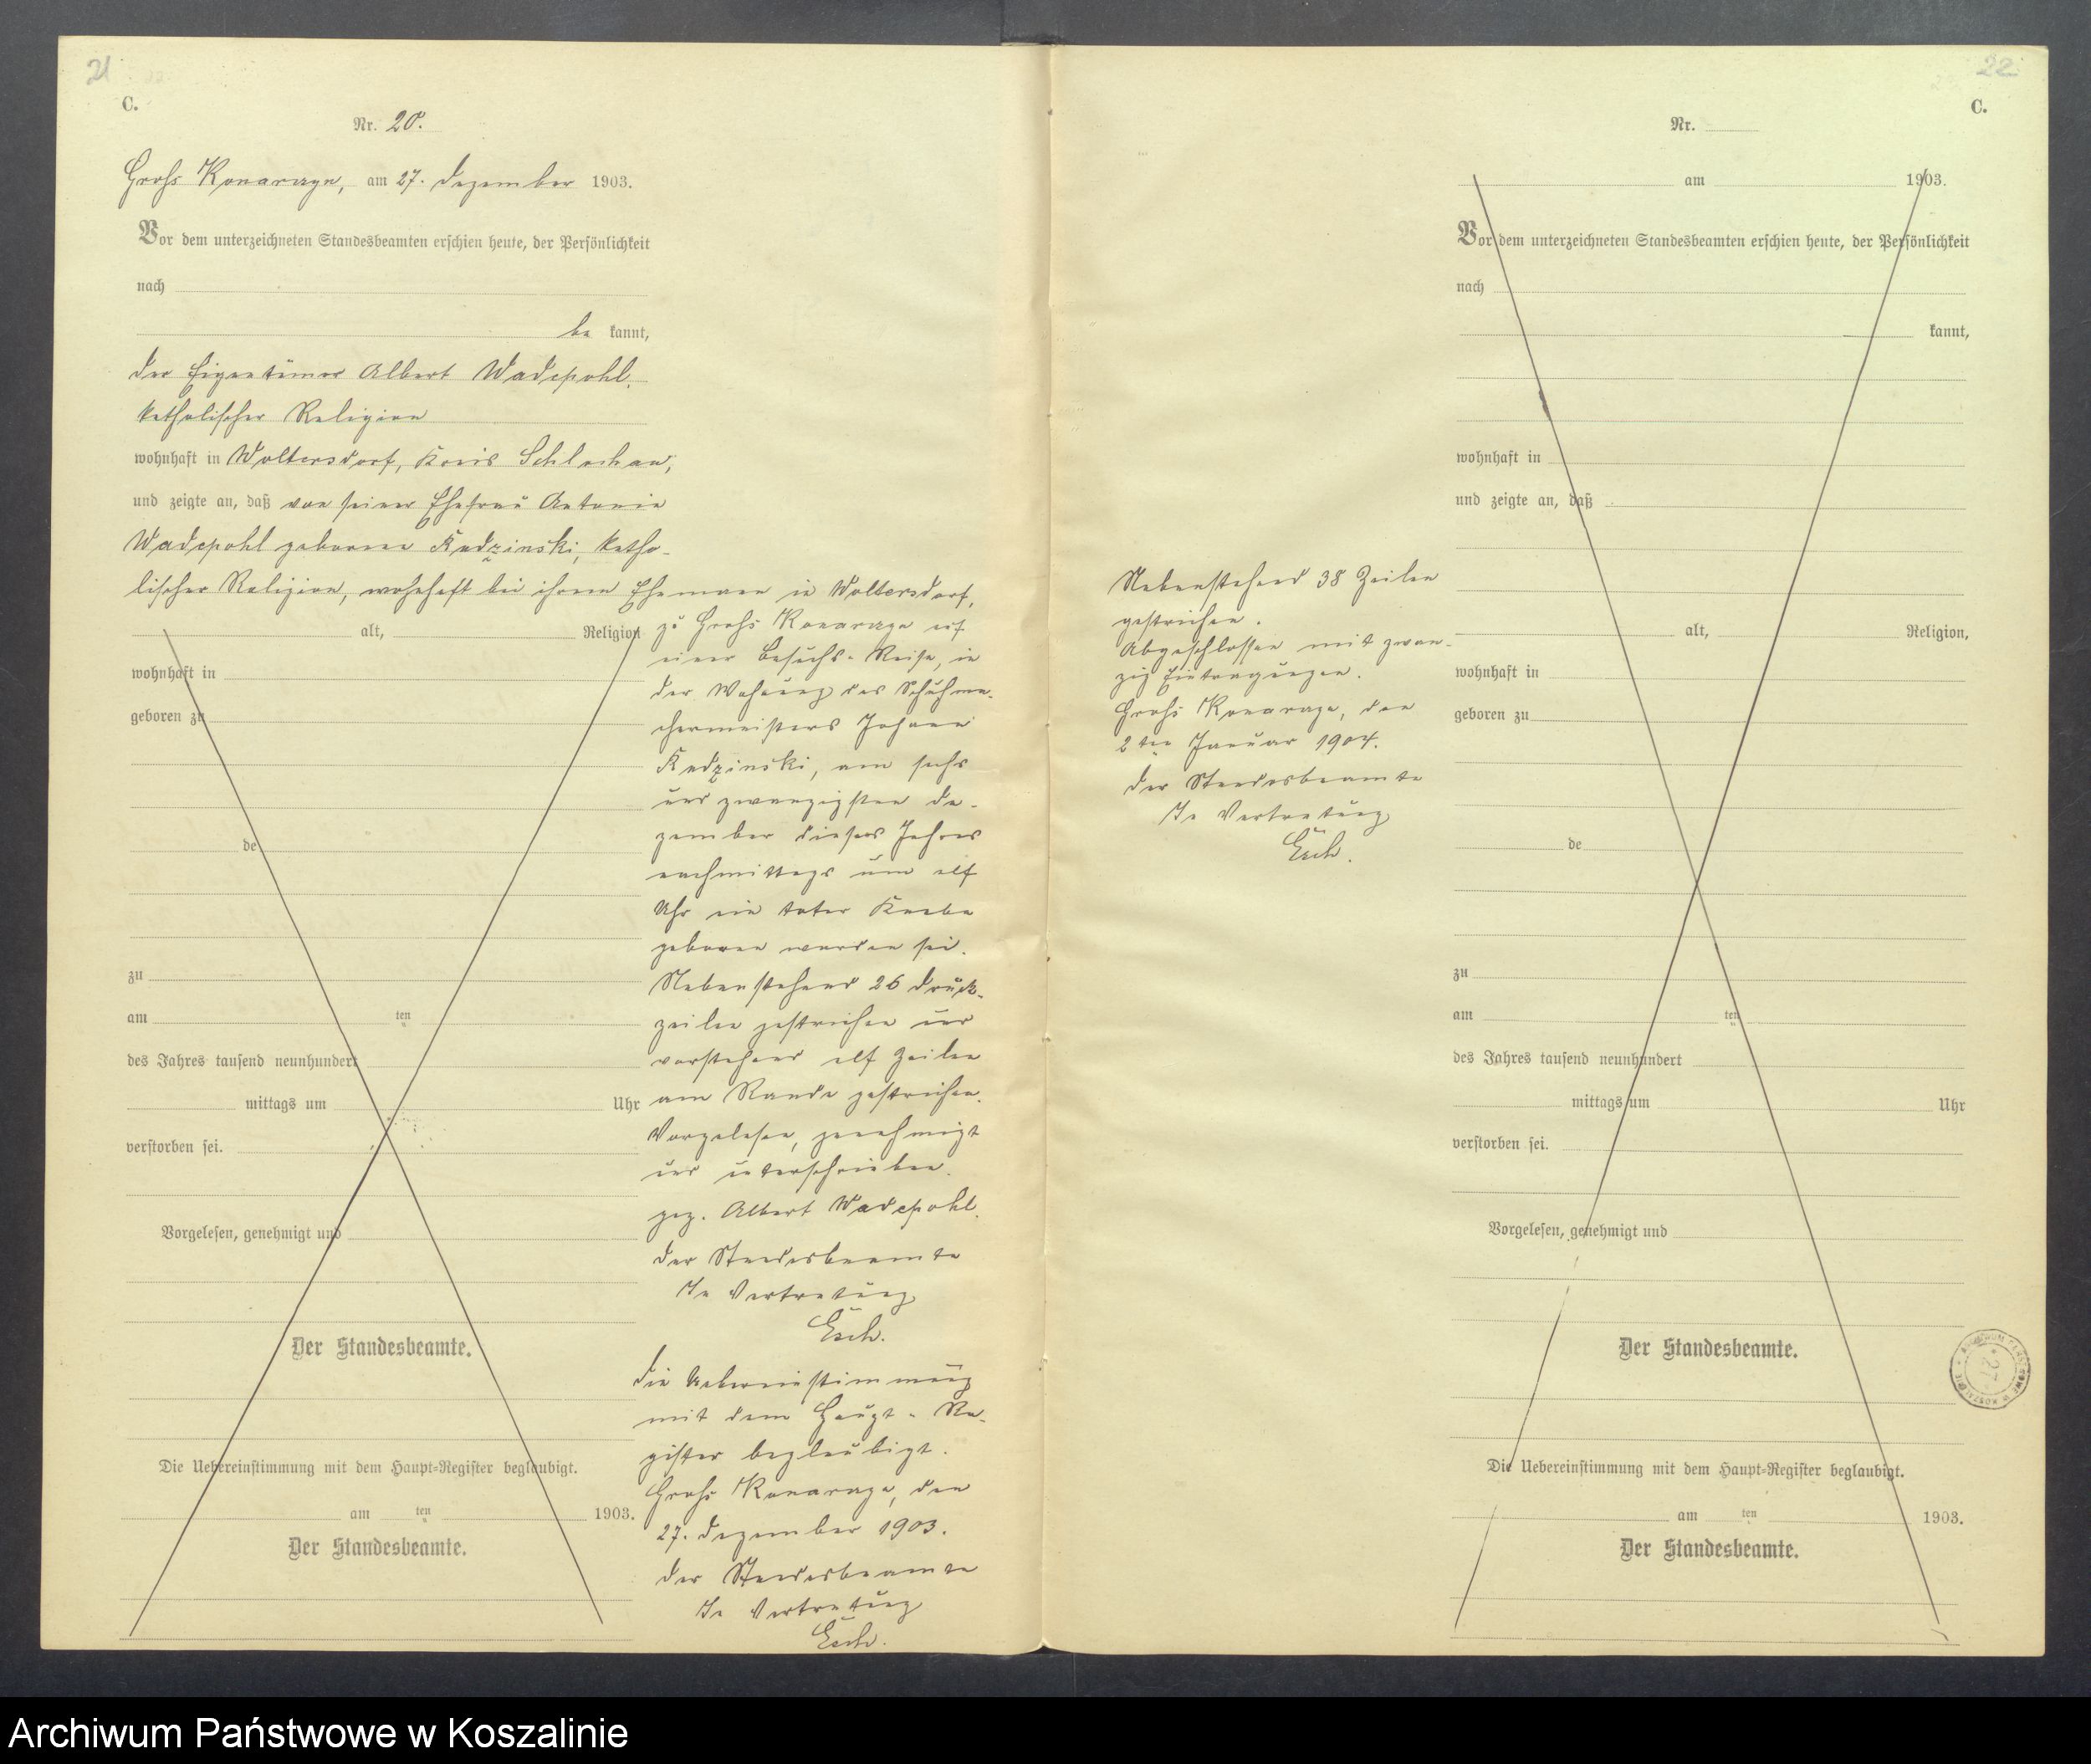 21
C.
Nr. 20.
Groß Konarczyn, am 27. Dezember 1903.
Vor dem unterzeichneten Standesbeamten erschien heute, der Persönlichkeit
nach
be kannt,
der Eigentümer Albert Wadepohl,
katholischer Religion
wohnhaft in Woltersdorf, Kreis Schlochau,
und zeigte an, daß von seiner Ehefrau Antonie
Wadepohl geborene Kudzinski, katho-
lischer Religion, wohnhaft bei ihrem Ehemann in Woltersdorf,
alt, Religion
zu Groß Konarczyn auf
einer Besuchs-Reise, in
wohnhaft in
der Wohnung des Schuhma-
geboren zu
chermeisters Johann
Kudzinski, am sechs
und zwanzigsten De-
zember dieses Jahres
de
nachmittags um elf
Uhr ein toter Knabe
geboren worden sei.
zu
Nebenstehend 26 Druck-
am ten
zeilen gestrichen und
des Jahres tausend neunhundert
vorstehend elf Zeilen
mittags um Uhr
am Rande gestrichen.
verstorben sei.
Vorgelesen, genehmigt
und unterschrieben.
gez. Albert Wadepohl.
Vorgelesen, genehmigt und
Der Standesbeamte
In Vertretung
Esch.
Der Standesbeamte.
Die Uebereinstimmung
mit dem Haupt-Re-
gister beglaubigt.
Die Uebereinstimmung mit dem Haupt-Register beglaubigt.
Groß Konarczyn, den
am ten 1903.
27. Dezember 1903.
Der Standesbeamte.
Der Standesbeamte
In Vertretung
Esch.
22
C.
Nr.
am 1903.
Vor dem unterzeichneten Standesbeamten erschien heute, der Persönlichkeit
nach
kannt,
wohnhaft in
und zeigte an, daß
Nebenstehend 38 Zeilen
gestrichen.
Abgeschlossen mit zwan-
zig Eintragungen.
Groß Konarczyn, den
2ten Januar 1904.
Der Standesbeamte
In Vertretung
Esch.
alt, Religion,
wohnhaft in
geboren zu
de
zu
am ten
des Jahres tausend neunhundert
mittags um Uhr
verstorben sei.
Vorgelesen, genehmigt und
Der Standesbeamte.
Die Uebereinstimmung mit dem Haupt-Register beglaubigt.
am ten 1903.
Der Standesbeamte.
Archiwum Państwowe w Koszalinie